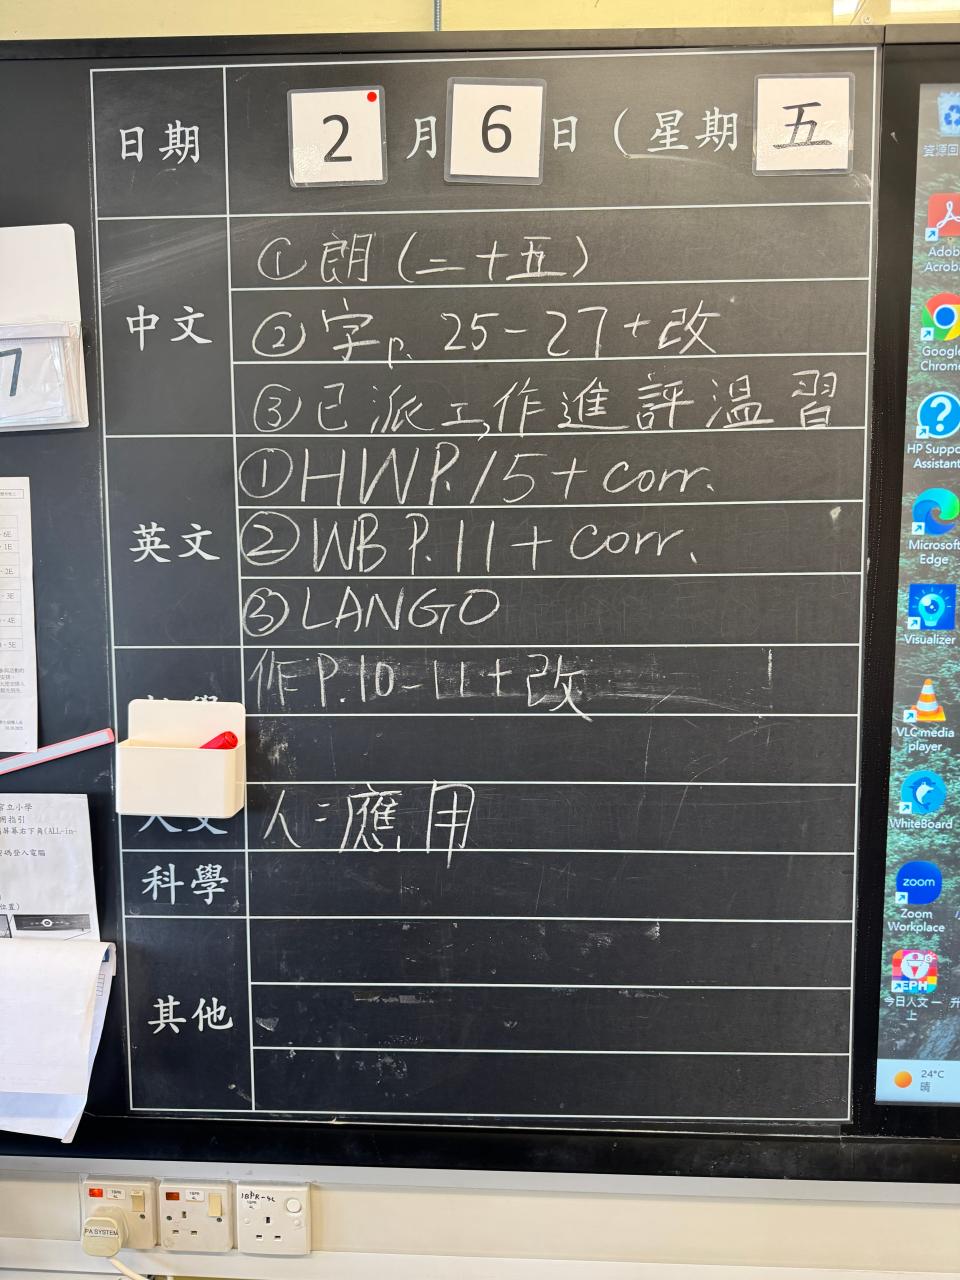 日期 2 月 6 日 (星期 五
中文
① 朗 (二十五)
② 字 p. 25-27 + 改
③ 已派工作進評溫習
英文
① HW P.15 + corr.
② WB P.11 + corr.
③ LANGO
學
作 P.10-11 + 改
人文
人=應用
科學
其他
7
官立小學
屏幕右下角(ALL-in-
密碼登入電腦
位置)
資源回
Adob
Acroba
Google
Chrome
HP Suppo
Assistant
Microsoft
Edge
Visualizer
VLC media
player
WhiteBoard
zoom
Zoom
Workplace
EPH
今日人文 一
上
升
24°C
晴
PA SYSTEM
1BPR-4L